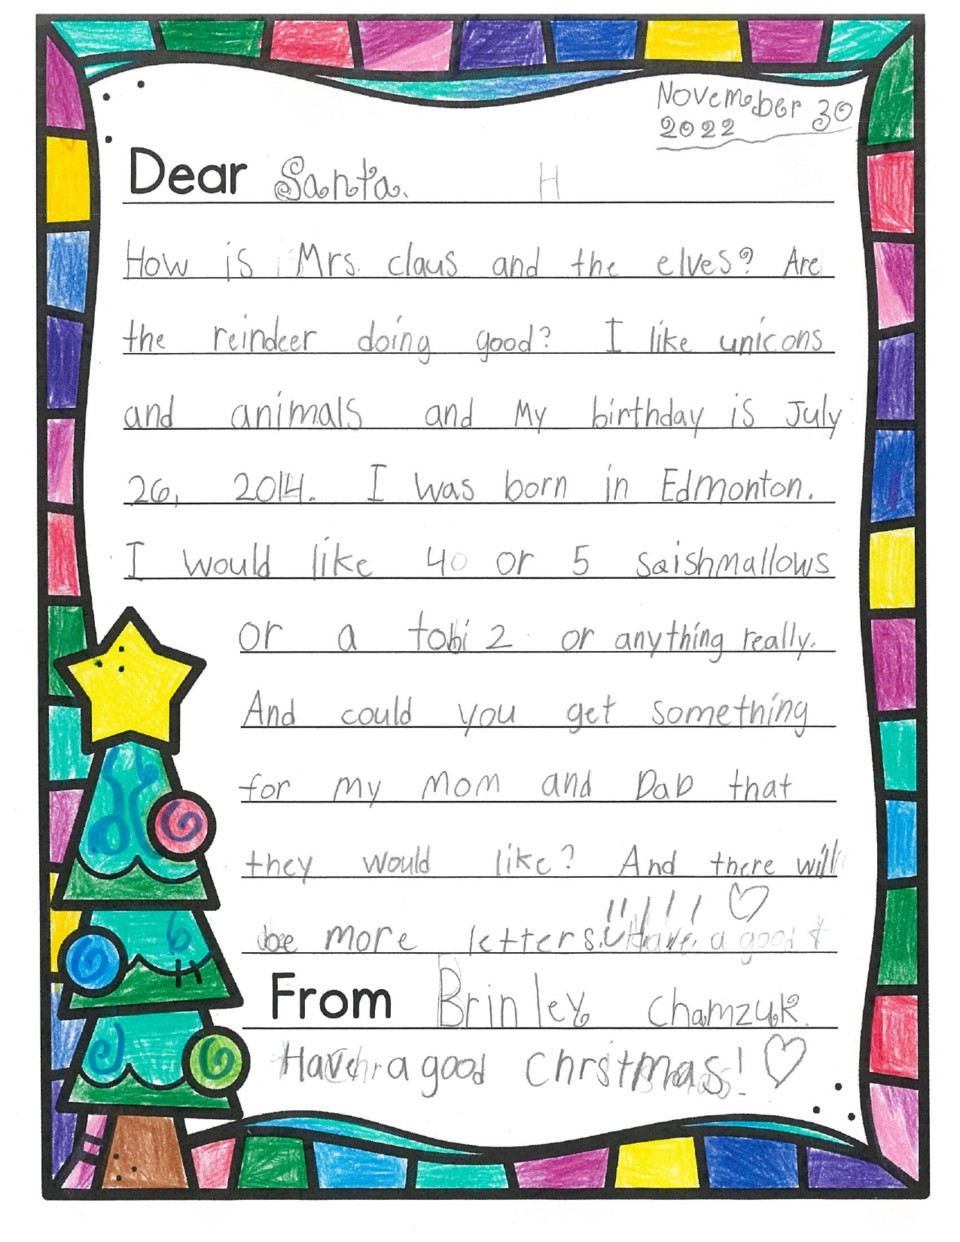 November 30
2022
Dear Santa. H
How is Mrs. claus and the elves? Are
the reindeer doing good? I like unicons
and animals and My birthday is July
26, 2014. I was born in Edmonton.
I would like 40 or 5 sqishmallows
or a tobi 2 or anything really.
And could you get something
for my Mom and DaD that
they would like? And there will
be more letters. Have a good
From Brinley chamzuk.
Have a good Christmas!